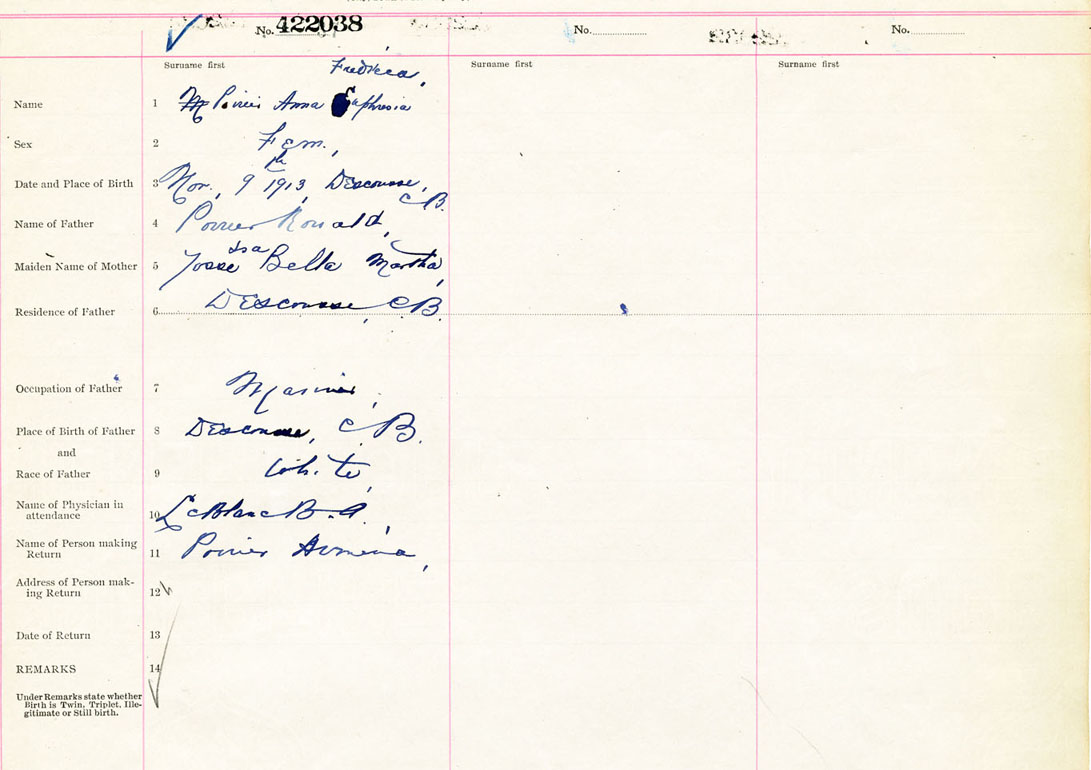 No. 422038 No. No.
Surname first Surname first Surname first
Fredrica,
Name 1 Poirier Anna Euphresia
Sex 2 Fem.,
Date and Place of Birth 3 Nov. 9th 1913, DEscousse, C B.
Name of Father 4 Poirier Ronald,
Isa
Maiden Name of Mother 5 Josse Bella Martha,
Residence of Father 6 DEscousse, C B.
Occupation of Father 7 Mariner,
Place of Birth of Father 8 DEscousse, C B.
and
Race of Father 9 White,
Name of Physician in
attendance 10 LeBlanc B. A.,
Name of Person making
Return 11 Poirier Armena,
Address of Person mak-
ing Return 12
Date of Return 13
REMARKS 14
Under Remarks state whether
Birth is Twin, Triplet, Ille-
gitimate or Still birth.